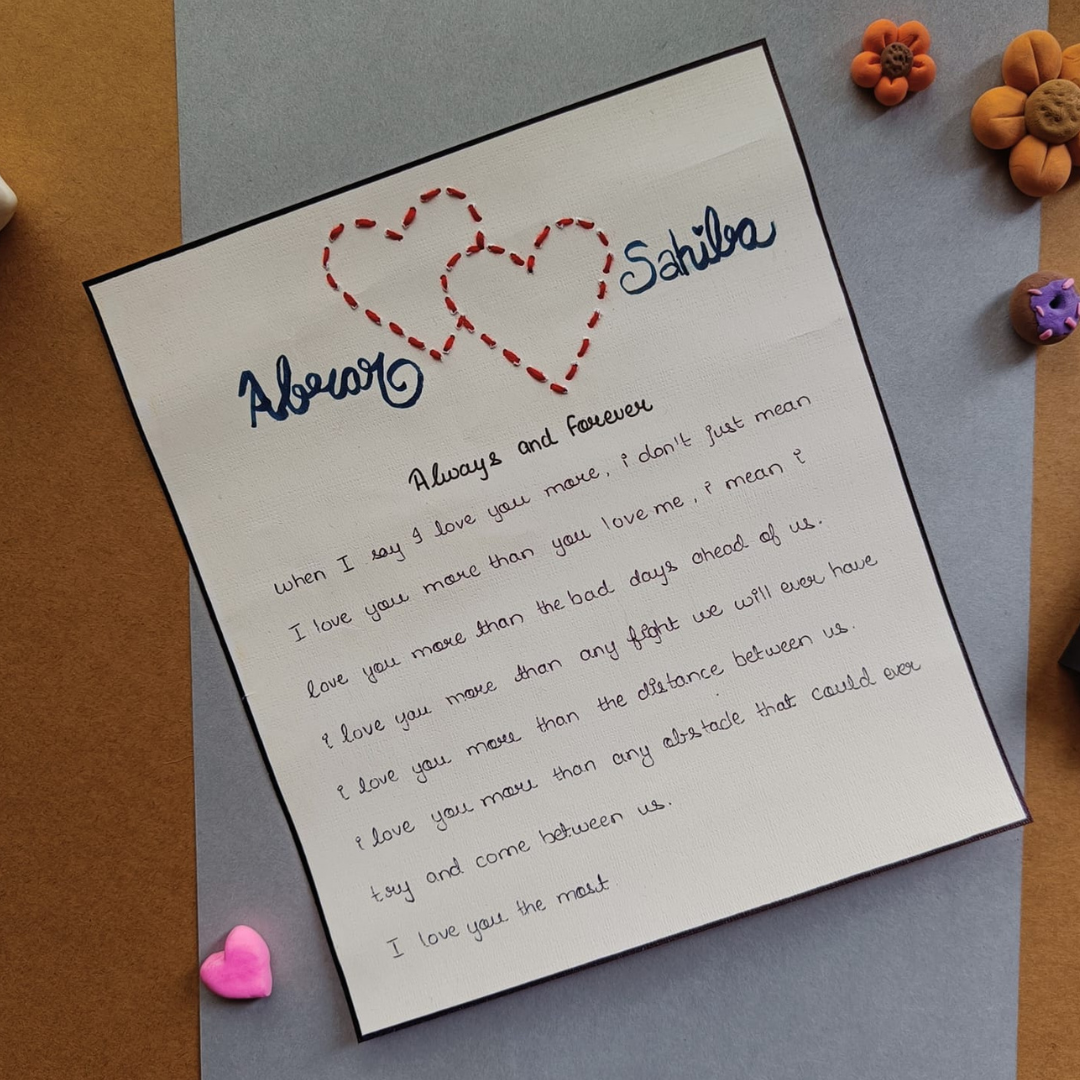 Sahiba
Abrar
Always and Forever
when I say I love you more, i don't just mean
I love you more than you love me, i mean i
love you more than the bad days ahead of us.
i love you more than any fight we will ever have
i love you more than the distance between us.
i love you more than any obstacle that could ever
try and come between us.
I love you the most